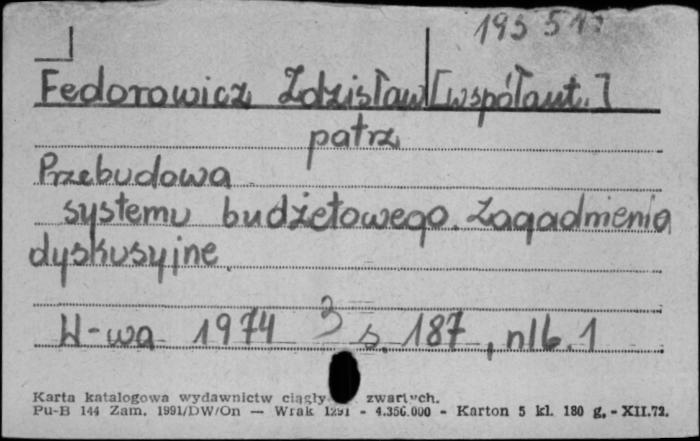 Fedorowicz Zdzisław [współaut.]
patrz
Przebudowa
systemu budżetowego. Zagadnienia
dyskusyjne
W-wa 1974 s. 187, nlb. 1
Karta katalogowa wydawnictw zwartych.
Pu-B 144 Zam. 1991/DW/On — Wrak 1291 - 4.350.000 - Karton 5 kl. 180 g. - XII.72.